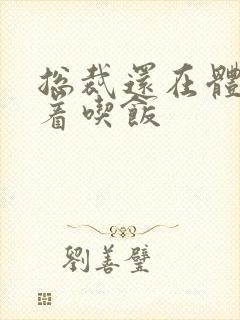 總裁還在體
着喫飯
劉善璧